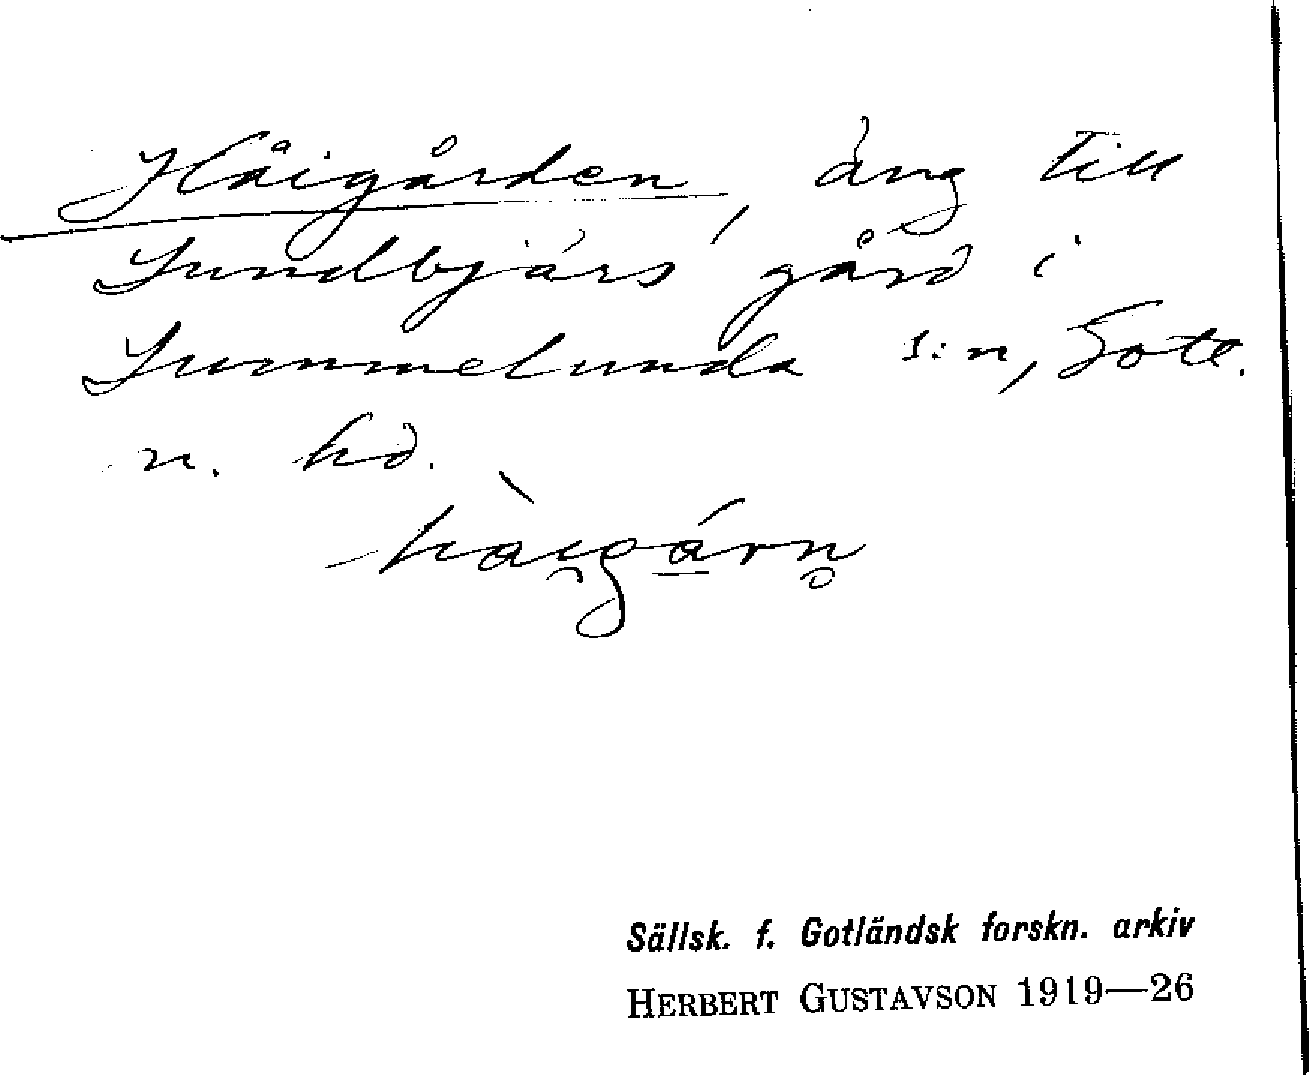 Håigården, äng till
Lundbjärs gård i
Lummelunda s:n, Gotl.
n. hd.
hài̯gá̠rn̥
Sällsk. f. Gotländsk forskn. arkiv
HERBERT GUSTAVSON 1919—26